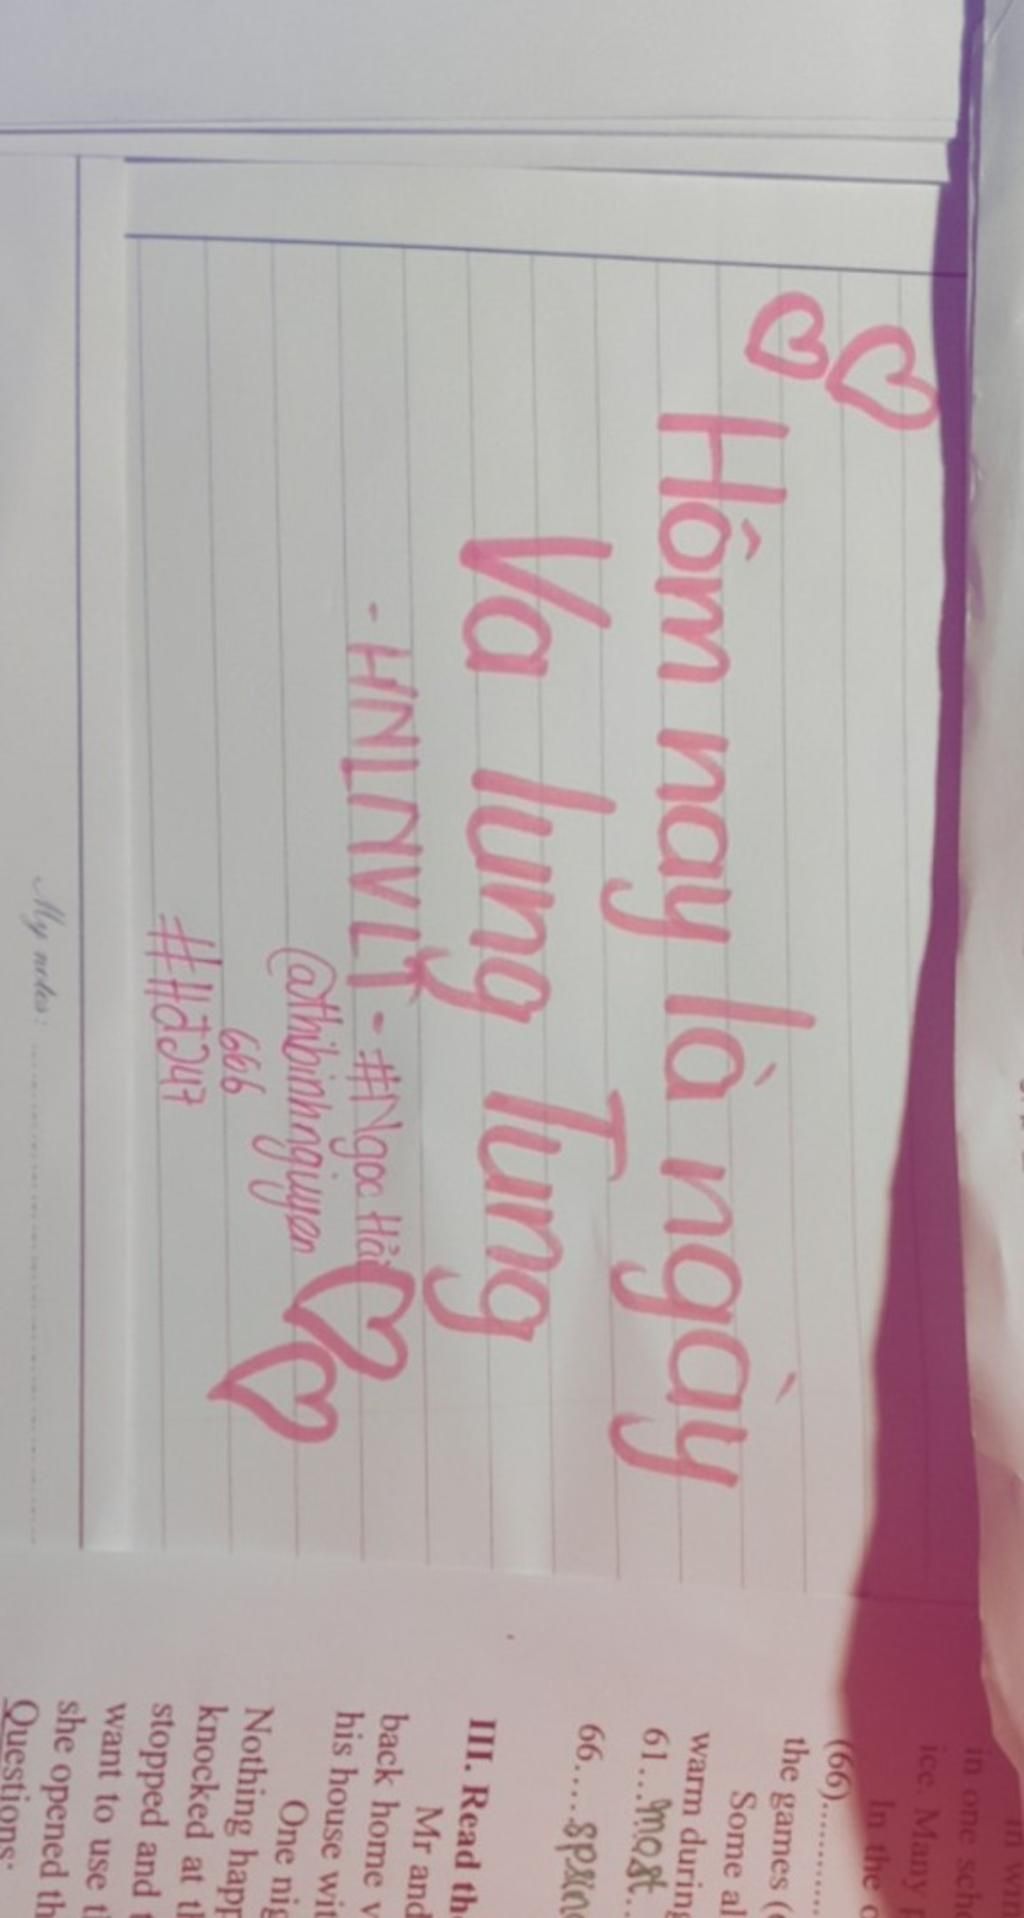 Hôm nay là ngày
Va lung Tung
- HNLNVLT - #Ngọc Hải
@thibinhnguyen
666
#HĐ247
My notes:
in one
ice. Many
In the
(66)............
the games
Some
warm during
61...most..
66....
III. Read
Mr and
back home
his house
One
Nothing
knocked at
stopped and
want to use
she opened
Questions: